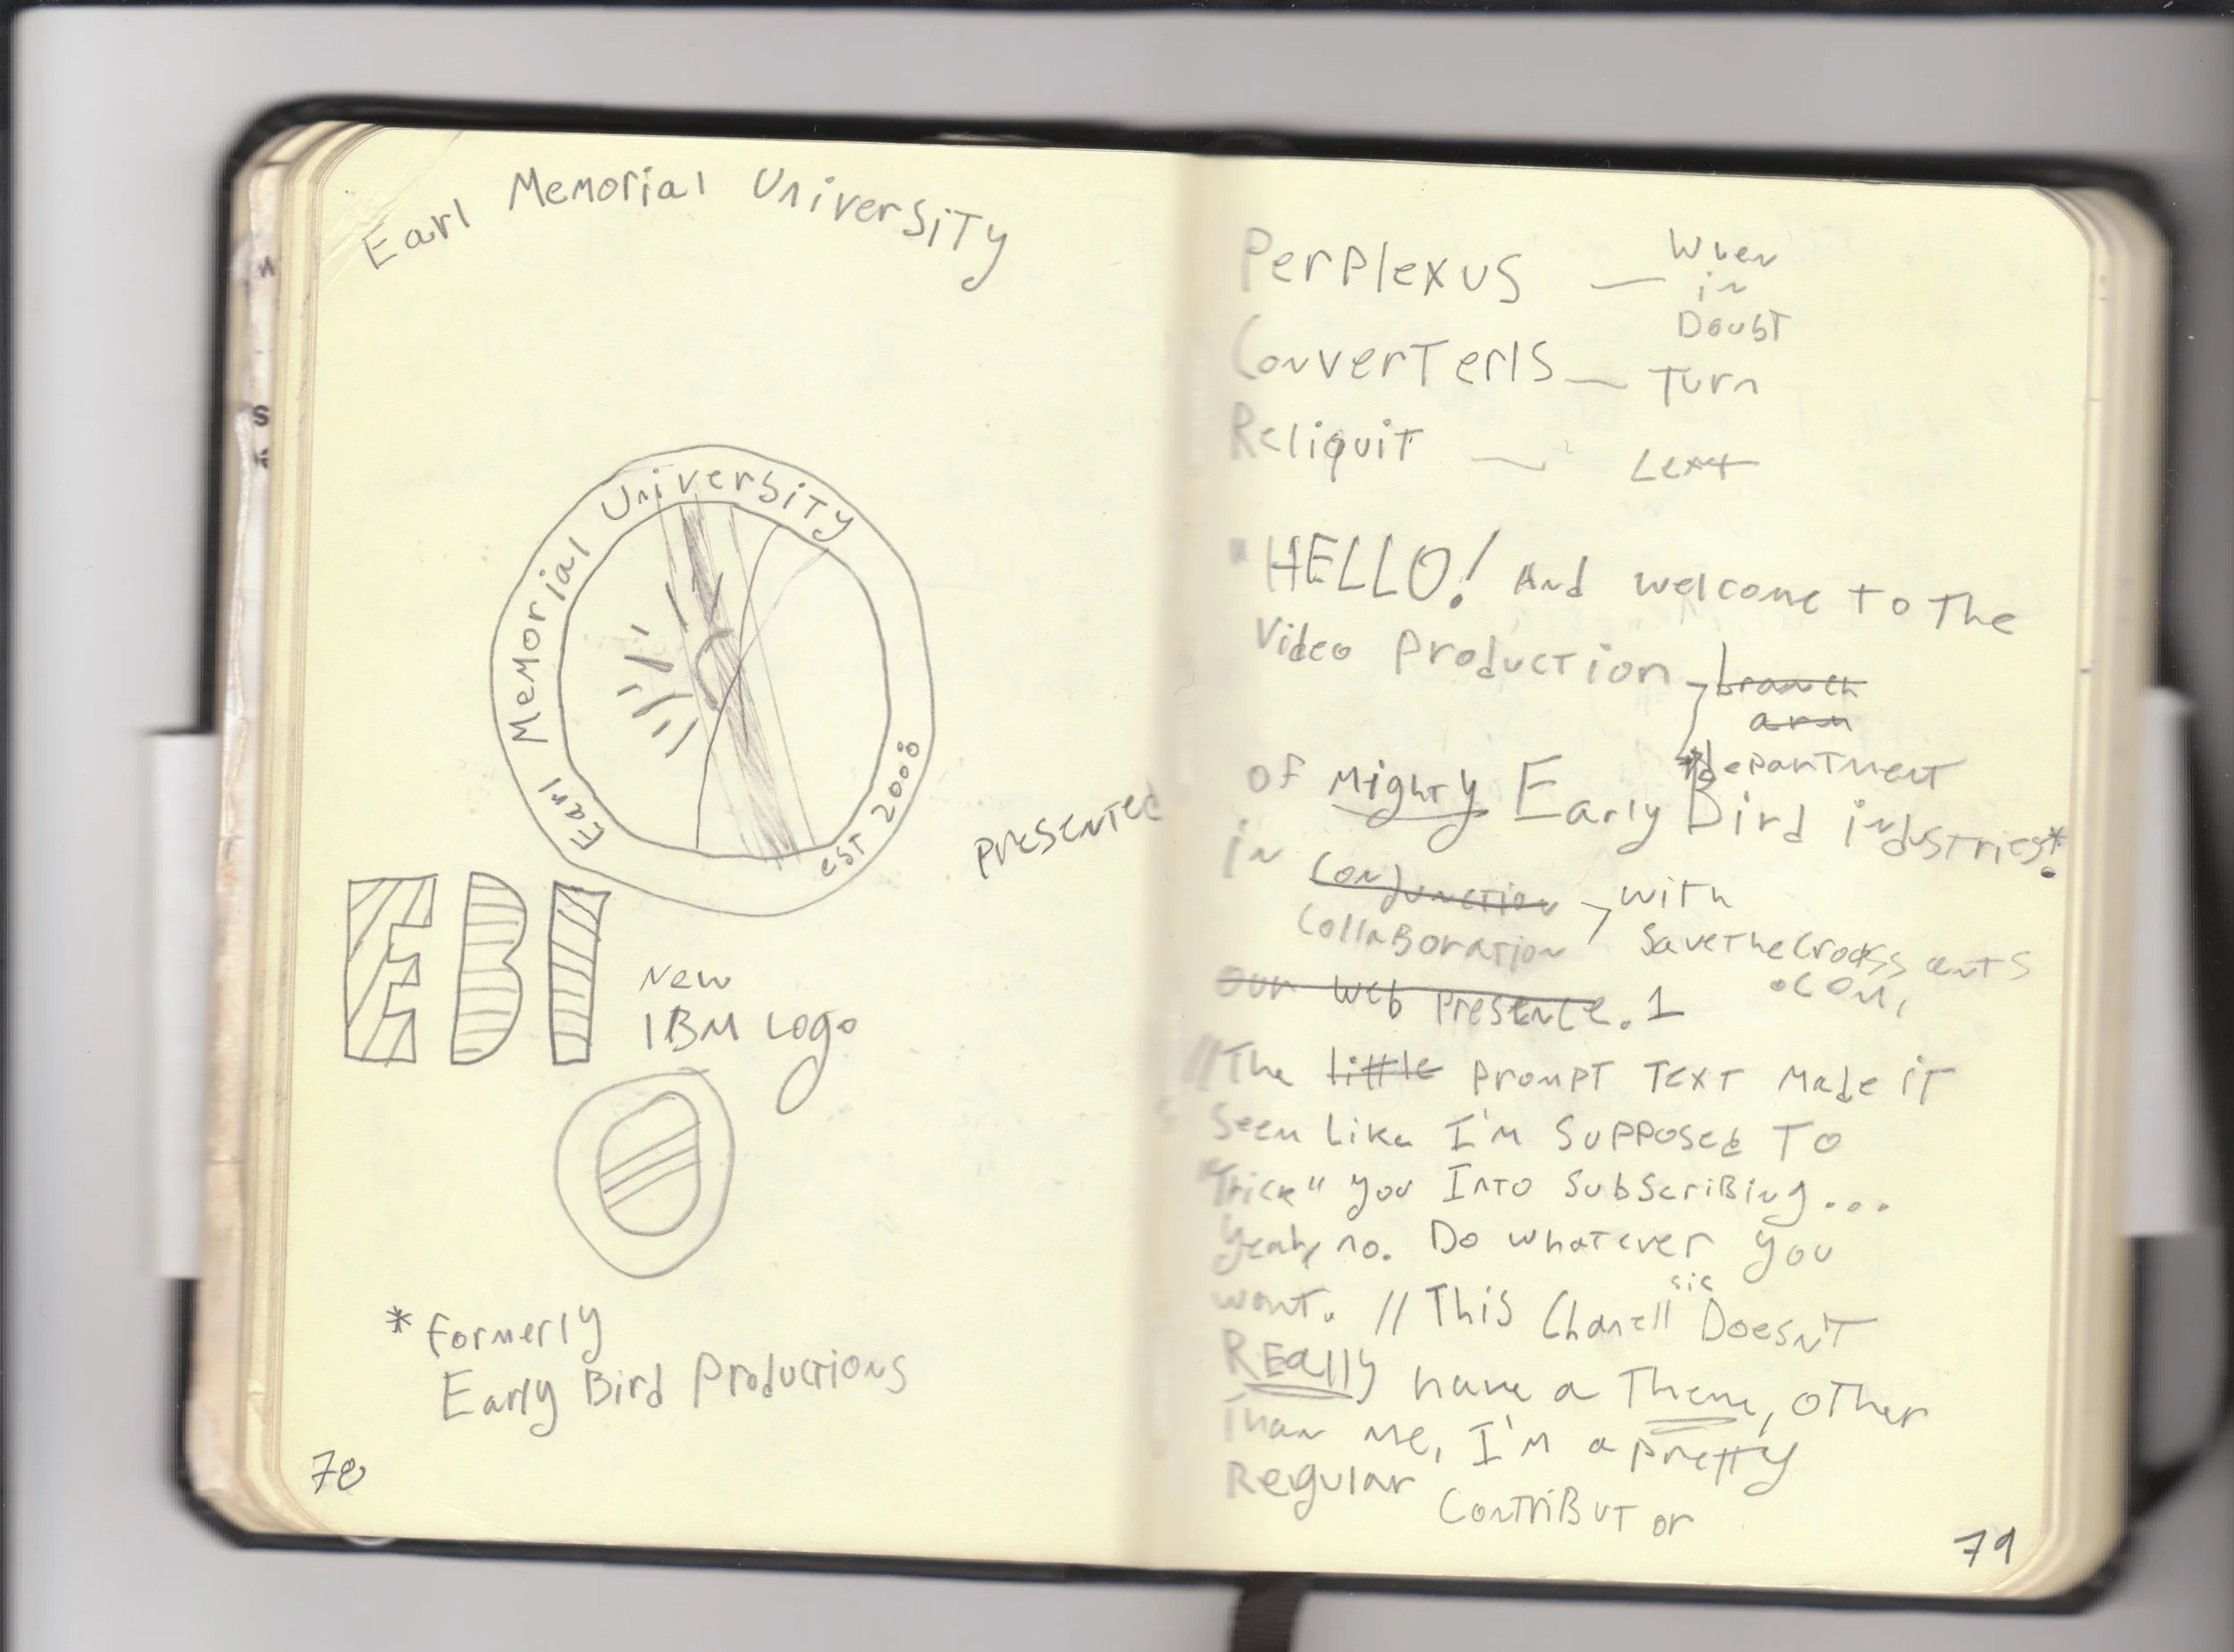 Earl Memorial University
Earl Memorial University
est 2008
presented
EBI
New
IBM Logo
* formerly
Early Bird Productions
78
Perplexus — When
in
Doubt
Converteris — Turn
Reliquit — Left
"HELLO! And welcome to the
Video Production branch
arm
department
of Mighty Early Bird industries!*
in conjunction with
collaboration savethecroissants
.com,
our web presence. 1
//The little prompt text made it
seem like I'm supposed to
"Trick" you into subscribing...
yeah, no. Do whatever you
want. // This Chanell sic Doesn't
REally have a Theme, other
Than me, I'm a pretty
Regular contributor
79